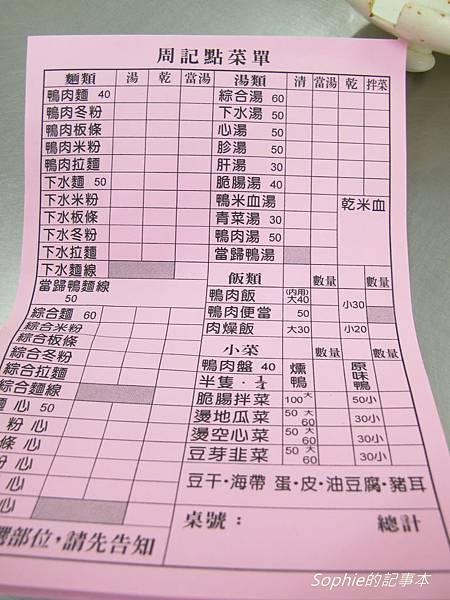 周記點菜單
麵類 湯 乾 當湯
鴨肉麵 40
鴨肉冬粉
鴨肉板條
鴨肉米粉
鴨肉拉麵
下水麵 50
下水米粉
下水板條
下水冬粉
下水拉麵
下水麵線
當歸鴨麵線
50
綜合麵 60
綜合米粉
綜合板條
綜合冬粉
綜合拉麵
綜合麵線
麵 心 50
粉 心
條 心
粉 心
麵 心
心
部位，請先告知
湯類 清 當湯 乾 拌菜
綜合湯 60
下水湯 50
心湯 50
胗湯 50
肝湯 30
脆腸湯 40
鴨米血湯 乾米血
青菜湯 30
鴨肉湯 50
當歸鴨湯
飯類 數量 數量
鴨肉飯 (內用)大40 小30
鴨肉便當 50
肉燥飯 大30 小20
小菜 數量 數量
鴨肉盤 40 燻鴨 原味鴨
半隻・¼
脆腸拌菜 100大 50小
燙地瓜菜 50 大60 30小
燙空心菜 50 大60 30小
豆芽韭菜 50 大60 30小
豆干・海帶 蛋・皮・油豆腐・豬耳
桌號： 總計
Sophie的記事本